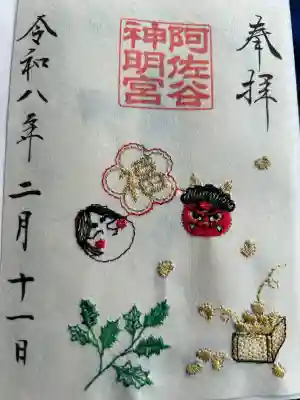 奉拝
阿佐谷
神明宮
福
令和八年二月十一日